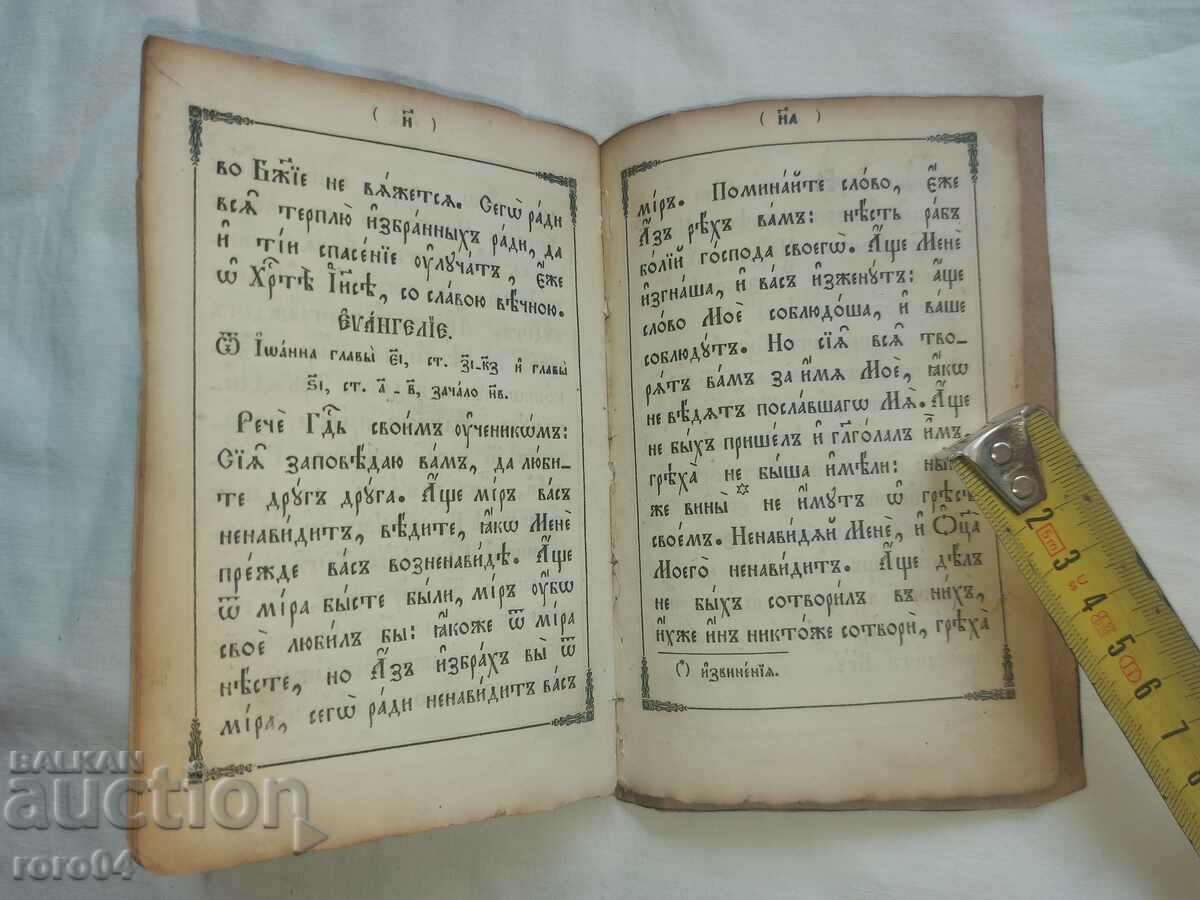 ( н҃ )
во Бж҃їе не вѧ́жетсѧ. Сегѡ̀ ра́ди
всѧ̑ терплю̀ и҆збра́нныхъ ра́ди, да
и҆ ті́и спасе́нїе ᲂу҆луча́тъ, є҆́же
ѡ҆ Хрⷭ҇тѣ̀ І҆и҃сѣ, со сла́вою вѣ́чною.
Є҆ѵа́нгелїе.
Ѿ І҆ѡа́нна главы̀ є҃і, ст. з҃і-к҃з и҆ главы̀
ѕ҃і, ст. а҃ - в҃, зача́ло н҃в.
Речѐ Гдⷭ҇ь свои̑мъ ᲂу҆ченикѡ́мъ:
Сїѧ̑ заповѣ́даю ва́мъ, да люби́-
те дрꙋ́гъ дрꙋ́га. А҆́ще мі́ръ ва́съ
ненави́дитъ, вѣ́дите, ꙗ҆́кѡ Менѐ
пре́жде ва́съ возненави́дѣ. А҆́ще
ѿ мі́ра бы́сте бы́ли, мі́ръ ᲂу҆́бѡ
своѐ люби́лъ бы: ꙗ҆́коже ѿ мі́ра
нѣ́сте, но А҆́зъ и҆збра́хъ вы̀ ѿ
мі́ра, сегѡ̀ ра́ди ненави́дитъ ва́съ
( н҃а )
мі́ръ. Помина́йте сло́во, є҆́же
А҆́зъ рѣ́хъ ва́мъ: нѣ́сть ра́бъ
бо́лїй го́спода своегѡ̀. А҆́ще Менѐ
и҆згна́ша, и҆ ва́съ и҆зженꙋ́тъ: а҆́ще
сло́во Моѐ соблюдо́ша, и҆ ва́ше
соблюдꙋ́тъ. Но сїѧ̑ всѧ̑ тво-
рѧ́тъ ва́мъ за и҆́мѧ Моѐ, ꙗ҆́кѡ
не вѣ́дѧтъ посла́вшагѡ Мѧ̀. А҆́ще
не бы́хъ прише́лъ и҆ гл҃го́лалъ и҆̀мъ,
грѣха̀ не бы́ша и҆мѣ́ли: ны́
же вины̀ * не и҆́мꙋтъ ѡ҆ грѣсѣ̀
свое́мъ. Ненави́дѧй Менѐ, и҆ Ѻ҆ц҃а̀
Моегѡ̀ ненави́дитъ. А҆́ще дѣ́лъ
не бы́хъ сотвори́лъ въ ни́хъ,
и҆́хже и҆́нъ никто́же сотворѝ, грѣха̀
(*) и҆звине́нїѧ.
2 3 4 5 6 7 8
5m
BALKAN
auction
roro04